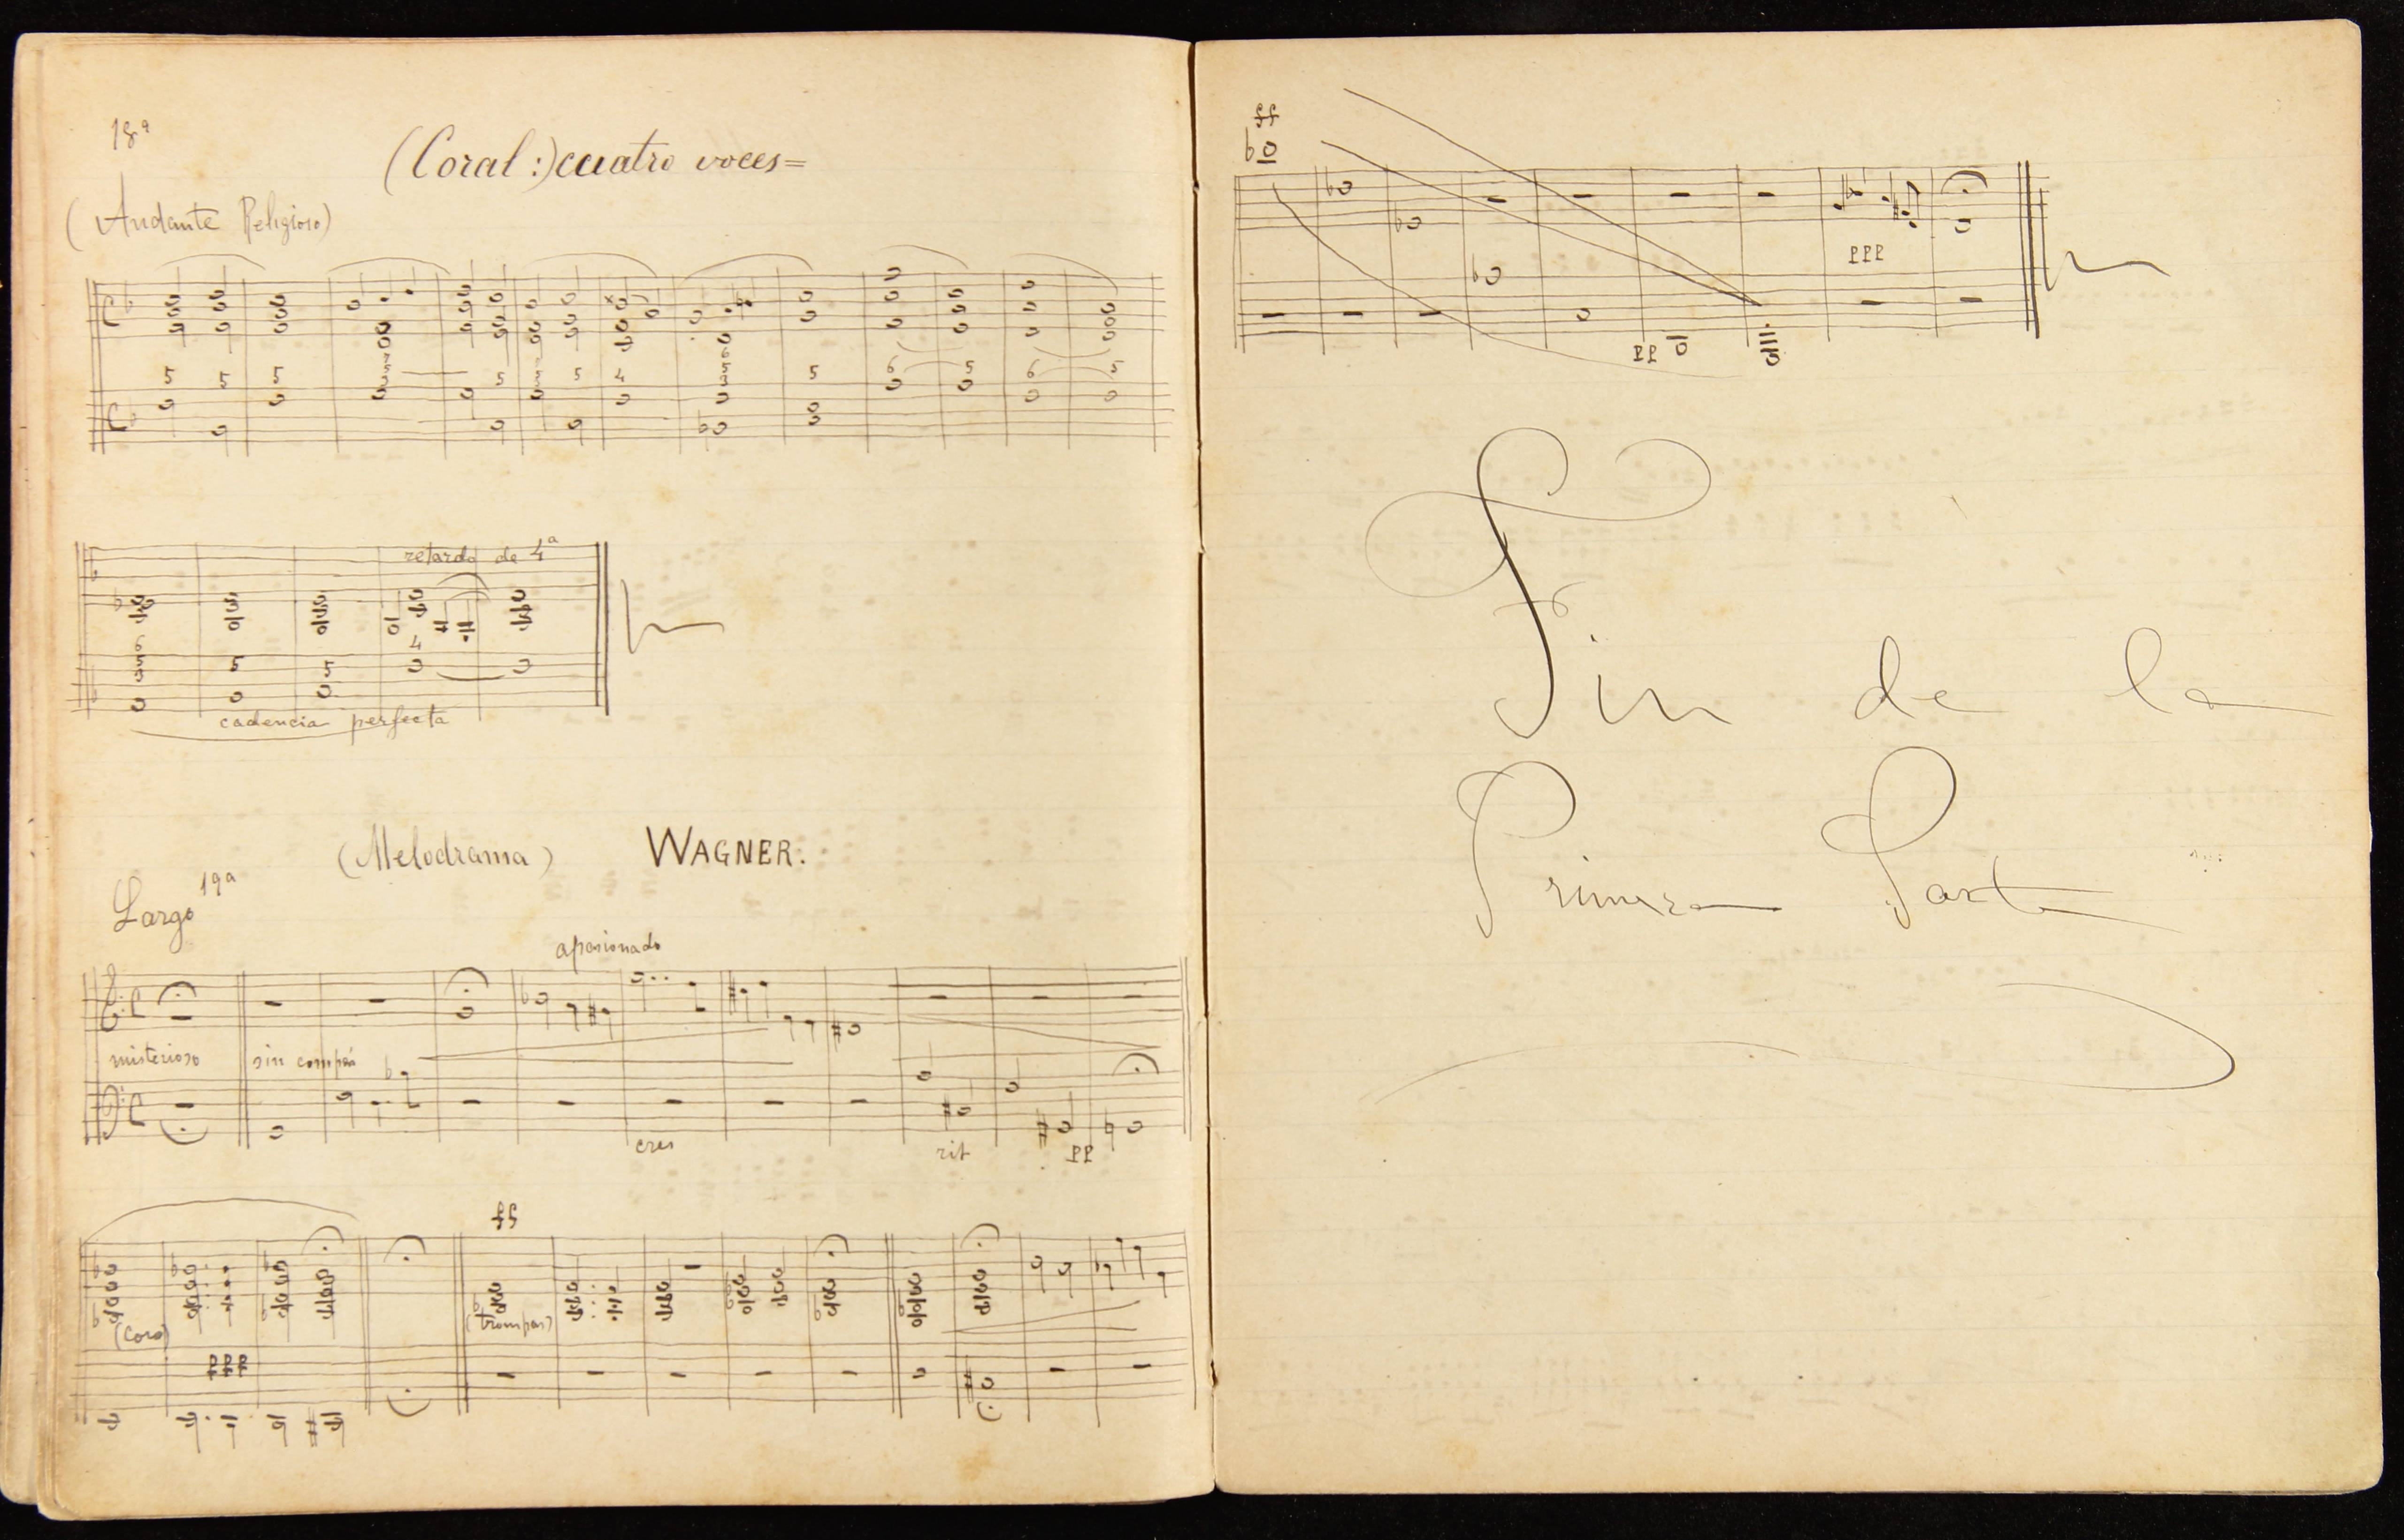 18ª
(Coral:) cuatro voces=
(Andante Religioso)
5 5 5 5 5 4 5 6 5 6 5
retardo de 4ª
6 5 5 5 4
cadencia perfecta
(Melodrama) WAGNER.
19ª
Largo
apasionado
misterioso sin compás
cres rit pp
ff
(Coro) (trompas)
ppp
ff
ppp
pp
Fin de la
Primera Parte